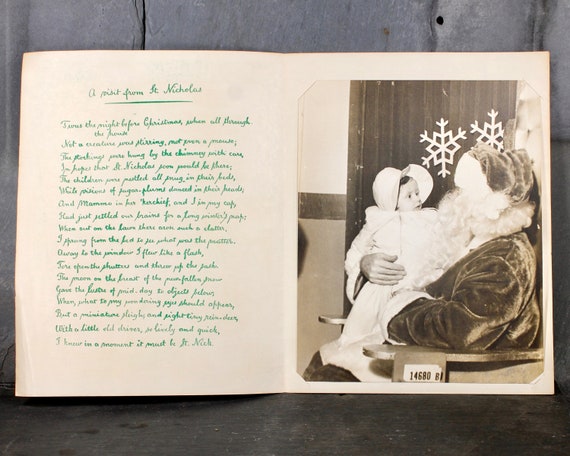 A visit from St. Nicholas
'Twas the night before Christmas, when all through
the house
Not a creature was stirring, not even a mouse;
The stockings were hung by the chimney with care,
In hopes that St. Nicholas soon would be there;
The children were nestled all snug in their beds,
While visions of sugar-plums danced in their heads;
And Mamma in her 'kerchief, and I in my cap,
Had just settled our brains for a long winter's nap;
When out on the lawn there arose such a clatter,
I sprang from the bed to see what was the matter.
Away to the window I flew like a flash,
Tore open the shutters and threw up the sash.
The moon on the breast of the new-fallen snow
Gave the lustre of mid-day to objects below,
When, what to my wondering eyes should appear,
But a miniature sleigh, and eight tiny rein-deer,
With a little old driver, so lively and quick,
I knew in a moment it must be St. Nick.
14680 B